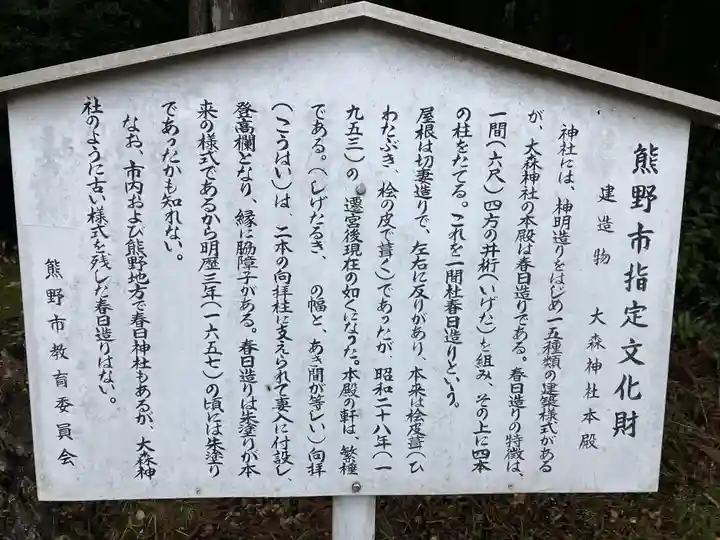 熊野市指定文化財
建造物　大森神社本殿
神社には、神明造りをはじめ一五種類の建築様式がある
が、大森神社の本殿は春日造りである。春日造りの特徴は、
一間（六尺）四方の井桁（いげた）を組み、その上に四本
の柱をたてる。これを一間社春日造りという。
屋根は切妻造りで、左右に反りがあり、本来は桧皮葺（ひ
わたぶき、桧の皮で葺く）であったが　昭和二十八年（一
九五三）の　遷宮後現在の如くになった。本殿の軒は、繁棰
である。（しげたるき、　の幅と、あき間が等しい）向拝
（こうはい）は、二本の向拝柱に支えられて妻入に付設し、
登高欄となり、縁に脇障子がある。春日造りは朱塗りが本
来の様式であるから明歴三年（一六五七）の頃には朱塗り
であったかも知れない。
なお、市内および熊野地方で春日神社もあるが、大森神
社のように古い様式を残した春日造りはない。
熊野市教育委員会